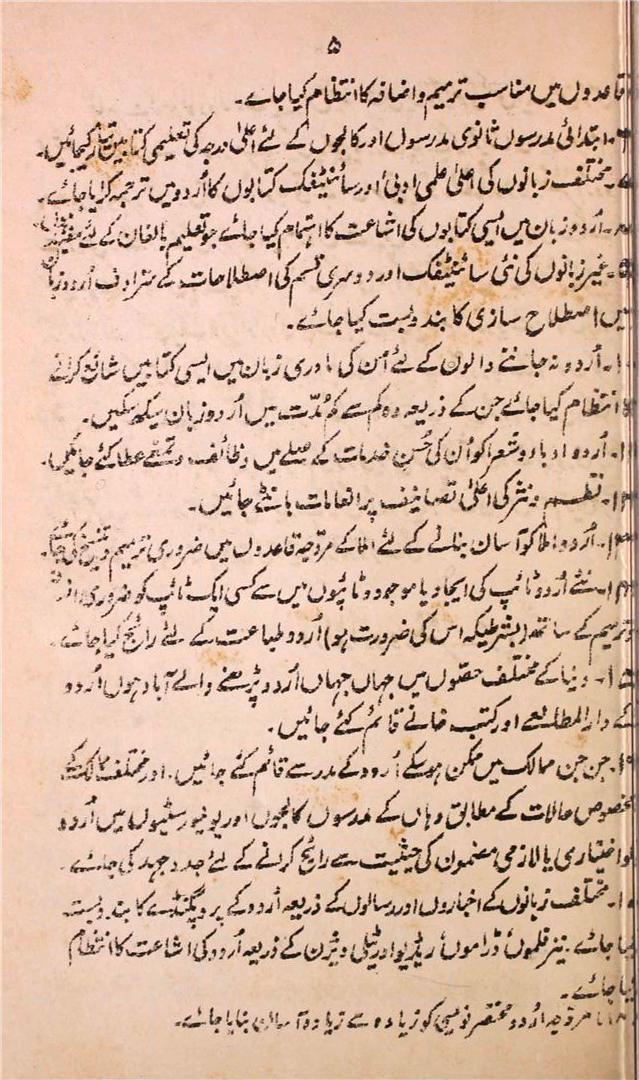 ۵
قاعدوں میں مناسب ترمیم و اضافہ کا انتظام کیا جائے۔
۶۔ ابتدائی مدرسوں ثانوی مدرسوں اور کالجوں کے لئے اعلیٰ درجہ کی تعلیمی کتابیں تیار کیجائیں۔
۷۔ مختلف زبانوں کی اعلیٰ علمی ادبی اور سائنٹیفک کتابوں کا اُردو میں ترجمہ کرایا جائے۔
۸۔ اُردو زبان میں ایسی کتابوں کی اشاعت کا اہتمام کیا جائے جو تعلیم بالغان کے لئے مفید
۹۔ غیر زبانوں کی نئی سائنٹیفک اور دوسری قسم کی اصطلاحات کے مترادف اُردو زبان
میں اصطلاح سازی کا بندوبست کیا جائے۔
۱۰۔ اُردو نہ جاننے والوں کے لئے اُن کی مادری زبان میں ایسی کتابیں شائع کرنے
کا انتظام کیا جائے جن کے ذریعہ وہ کم سے کم مُدّت میں اُردو زبان سیکھ سکیں۔
۱۱۔ اُردو ادبا و شعرا کو اُن کی حُسن خدمات کے صلے میں وظائف و تمغے عطا کئے جائیں۔
۱۲۔ نظم و نثر کی اعلیٰ تصانیف پر انعامات بانٹے جائیں۔
۱۳۔ اُردو املا کو آسان بنانے کے لئے املا کے مروّجہ قاعدوں میں ضروری ترمیم و تنسیخ کی جائے۔
۱۴۔ نئے اُردو ٹائپ کی ایجاد یا موجودہ ٹائپوں میں سے کسی ایک ٹائپ کو ضروری
و ترمیم کے ساتھ (بشرطیکہ اس کی ضرورت ہو) اُردو طباعت کے لئے رائج کیا جائے۔
۱۵۔ دنیا کے مختلف حصّوں میں جہاں جہاں اُردو پڑھنے والے آباد ہوں اُردو
کے دارالمطالعے اور کتب خانے قائم کئے جائیں۔
۱۶۔ جن جن ممالک میں ممکن ہو سکے اُردو کے مدرسے قائم کئے جائیں۔ اور مختلف ممالک کے
مخصوص حالات کے مطابق وہاں کے مدرسوں کالجوں اور یونیورسٹیوں میں اُردو
کو اختیاری یا لازمی مضمون کی حیثیت سے رائج کرانے کے لئے جدوجہد کی جائے۔
۱۷۔ مختلف زبانوں کے اخباروں اور رسالوں کے ذریعہ اُردو کے پروپگنڈے کا بندوبست
کیا جائے۔ نیز فلموں ڈراموں ریڈیو اور ٹیلی ویژن کے ذریعہ اُردو کی اشاعت کا انتظام
کیا جائے۔
مروّجہ اُردو مختصر نویسی کو زیادہ سے زیادہ آسان بنایا جائے۔